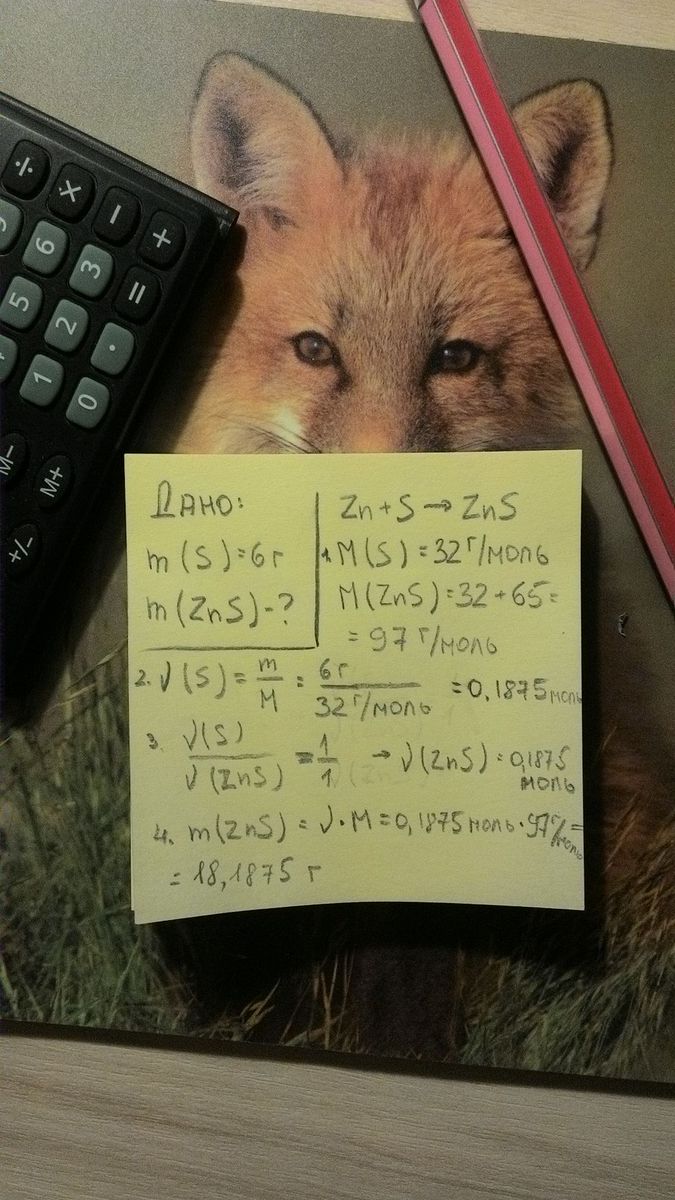 ÷ × − +
9 6 3 =
5 2 .
1 0
M− M+
+/−
Дано:
m(S)=6г
m(ZnS)-?
Zn+S→ZnS
1. M(S)=32г/моль
M(ZnS)=32+65=
=97г/моль
2. ν(S)=m/M=6г/32г/моль=0,1875моль
3. ν(S)/ν(ZnS)=1/1→ν(ZnS)=0,1875
моль
4. m(ZnS)=ν·M=0,1875моль·97г/моль=
=18,1875 г